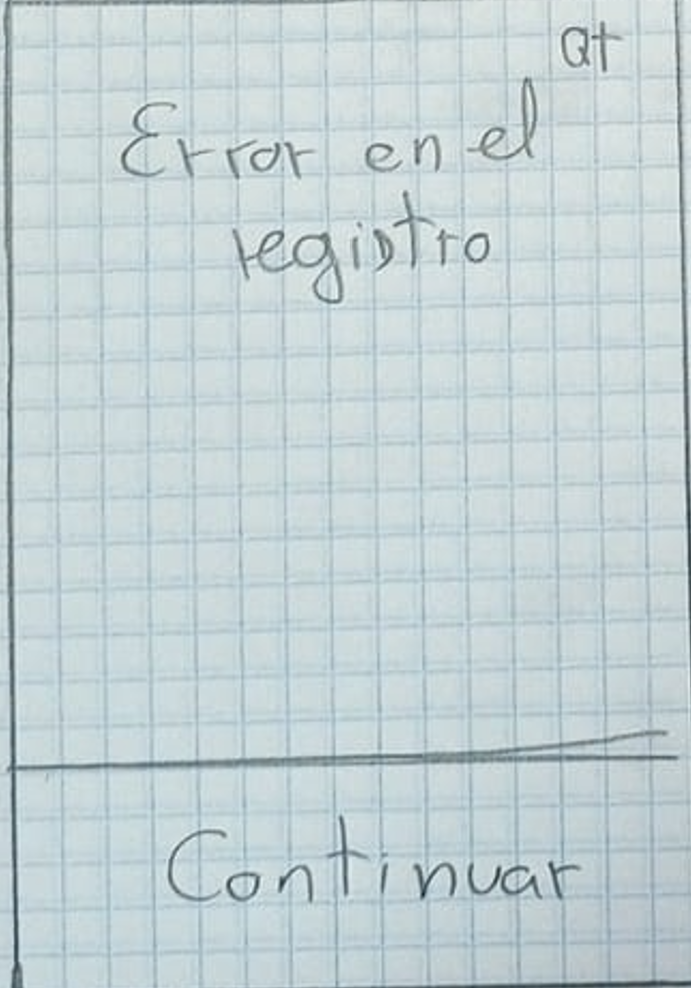 Qt
Error en el
registro
Continuar